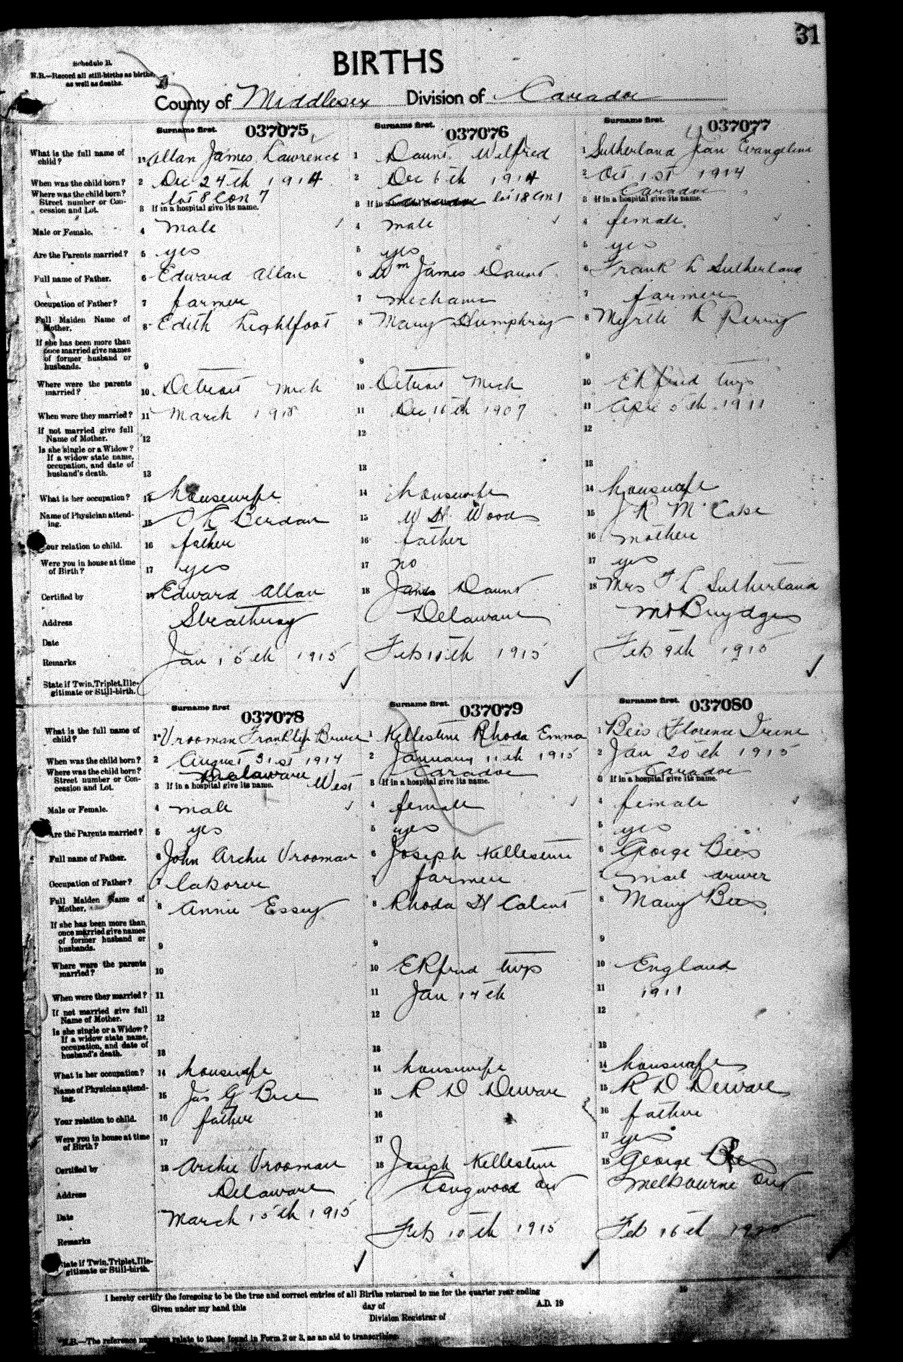 31
Schedule B.
BIRTHS
N.B.—Record all still-births as births, as well as deaths.
County of Middlesex Division of Caradoc
Surname first. 037075
Surname first. 037076
Surname first. 037077
What is the full name of child? 1 Allan James Lawrence
1 Daunt Wilfred
1 Sutherland Jean Evangeline
When was the child born? 2 Dec 24th 1914
2 Dec 6th 1914
2 Oct 1st 1914
Where was the child born? Street number or Concession and Lot. 3 If in a hospital give its name. lot 8 Con 7
3 If in a hospital give its name. lot 18 Con 1
3 If in a hospital give its name. Caradoc
Male or Female. 4 male
4 male
4 female
Are the Parents married? 5 yes
5 yes
5 yes
Full name of Father. 6 Edward Allan
6 Wm James Daunt
6 Frank L Sutherland
Occupation of Father? 7 farmer
7 mechanic
7 farmer
Full Maiden Name of Mother. 8 Edith Lightfoot
8 Mary Humphrey
8 Myrtle R Perry
If she has been more than once married give names of former husband or husbands. 9
9
9
Where were the parents married? 10 Detroit Mich
10 Detroit Mich
10 Ekfrid twp
When were they married? 11 March 1918
11 Dec 16th 1907
11 Apr 5th 1911
If not married give full Name of Mother. 12
12
12
Is she single or a Widow? If a widow state name, occupation, and date of husband's death. 13
13
13
What is her occupation? 14 housewife
14 housewife
14 housewife
Name of Physician attending. 15 Berdan
15 W H Woods
15 J R McCabe
Your relation to child. 16 father
16 father
16 mother
Were you in house at time of Birth? 17 yes
17 no
17 yes
Certified by 18 Edward Allan
18 James Daunt
18 Mrs F L Sutherland
Address Strathroy
Delaware
Mt Brydges
Date Jan 15th 1915
Feb 10th 1915
Feb 9th 1915
Remarks
State if Twin, Triplet, Illegitimate or Still-birth.
Surname first. 037078
Surname first. 037079
Surname first. 037080
What is the full name of child? 1 Vrooman Franklip Bruce
1 Kellestine Rhoda Emma
1 Bees Florence Irene
When was the child born? 2 August 31st 1914
2 January 11th 1915
2 Jan 20th 1915
Where was the child born? Street number or Concession and Lot. 3 If in a hospital give its name. Delaware West
3 If in a hospital give its name. Caradoc
3 If in a hospital give its name. Caradoc
Male or Female. 4 male
4 female
4 female
Are the Parents married? 5 yes
5 yes
5 yes
Full name of Father. 6 John Archie Vrooman
6 Joseph Kellestine
6 George Bees
Occupation of Father? 7 laborer
7 farmer
7 mail driver
Full Maiden Name of Mother. 8 Annie Essey
8 Rhoda H Calcut
8 Mary Bees
If she has been more than once married give names of former husband or husbands. 9
9
9
Where were the parents married? 10
10 Ekfrid twp
10 England
When were they married? 11
11 Jan 14th
11 1911
If not married give full Name of Mother. 12
12
12
Is she single or a Widow? If a widow state name, occupation, and date of husband's death. 13
13
13
What is her occupation? 14 housewife
14 housewife
14 housewife
Name of Physician attending. 15 Jas G Bice
15 R D Dewar
15 R D Deware
Your relation to child. 16 father
16
16 father
Were you in house at time of Birth? 17
17
17 yes
Certified by 18 Archie Vrooman
18 Joseph Kellestine
18 George Bees
Address Delaware
Longwood Ont
Melbourne Ont
Date March 15th 1915
Feb 10th 1915
Feb 16th 1915
Remarks
State if Twin, Triplet, Illegitimate or Still-birth.
I hereby certify the foregoing to be the true and correct entries of all Births returned to me for the quarter year ending 19
Given under my hand this day of A.D. 19
Division Registrar of
N.B.—The reference numbers relate to those found in Form 2 or 3, as an aid to transcribing.